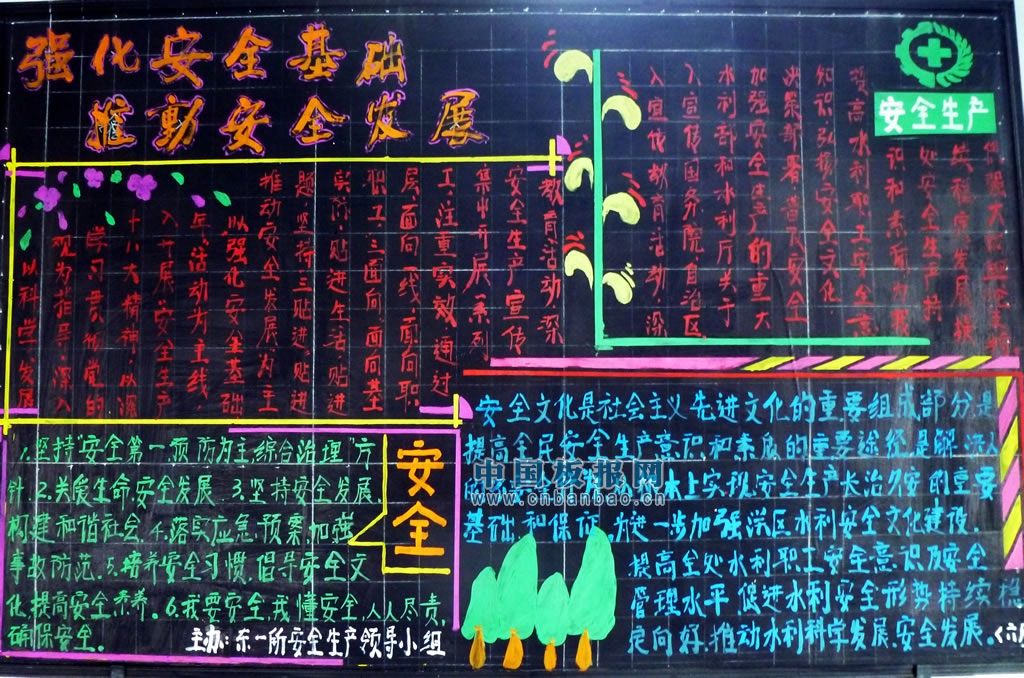 强化安全基础
推动安全发展
安全生产
以科学发展
观为指导,深入
学习贯彻党的
十八大精神,以深
入开展"安全生产
年"活动为主线,
以强化安全基础
推动安全发展为主
题,坚持三贴进,贴进
实际,贴进生活,贴进
职工;三面向,面向基
层面向一线,面向职
工;注重实效,通过
集中开展系列
安全生产宣传
教育活动,深
入宣传教育活动,深
入宣传国务院、自治区
水利部和水利厅关于
加强安全生产的重大
决策部署,普及安全
知识弘扬安全文化
提高水利职工安全意
识和素质为我
处安全生产持
续稳定发展提
供强大
1.坚持"安全第一,预防为主,综合治理"方
针.2.关爱生命,安全发展.3.坚持安全发展,
构建和谐社会.4.落实应急预案,加强
事故防范.5.培养安全习惯,倡导安全文
化,提高安全素养.6.我要安全,我懂安全人人尽责,
确保安全。
主办:东一所安全生产领导小组
安全
安全文化是社会主义先进文化的重要组成部分是
提高全民安全生产意识和素质的重要途径是解决
的 水上实现安全生产长治久安的重要
基础和保证.为进一步加强洪区水利安全文化建设,
提高全处水利职工安全意识及安全
管理水平,促进水利安全形势持续稳
定向好,推动水利科学发展、安全发展。
中国板报网
www.cnbanbao.cn